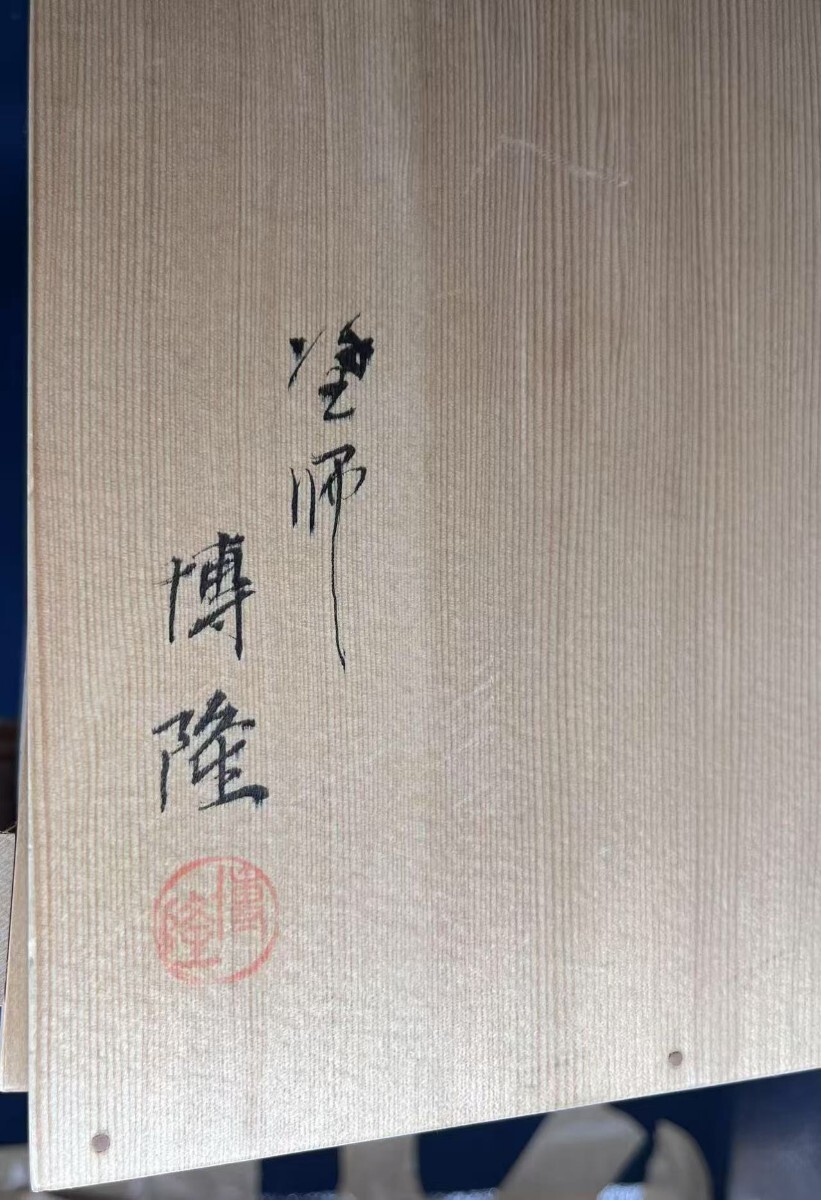 塗師
博隆
博隆